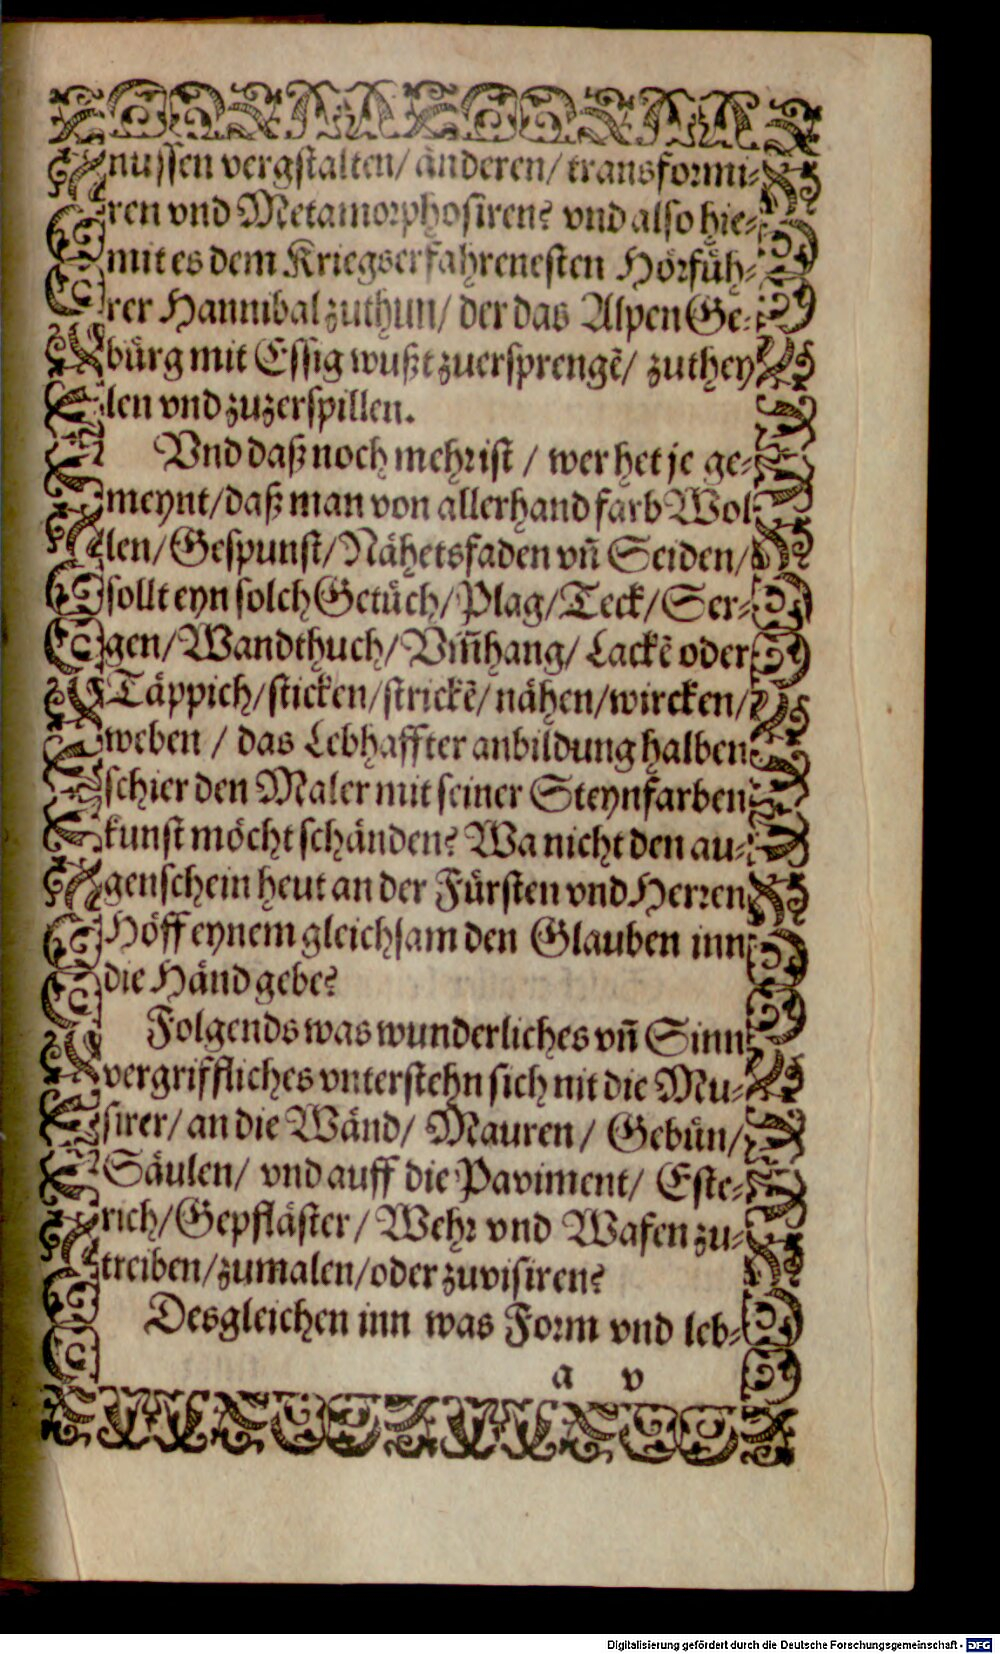 nussen vergstalten/ änderen/ transformi⸗
ren vnd Metamorphosiren? vnd also hie⸗
mit es dem Kriegserfahrenesten Hörfüh⸗
rer Hannibal zuthun/ der das Alpen Ge⸗
bürg mit Essig wußt zuersprengẽ/ zuthey
len vnd zuzerspillen.
Vnd daß noch mehr ist / wer het je ge⸗
meynt/ daß man von allerhand farb Wol
len/ Gespunst/ Nähetsfaden vñ Seiden/
sollt eyn solch Getüch/ Plag/ Teck/ Ser⸗
gen/ Wandthuch/ Vm̃hang/ Lackẽ oder
Täppich/ sticken/ strickẽ/ nähen/ wircken/
weben / das Lebhaffter anbildung halben
schier den Maler mit seiner Steynfarben
kunst möcht schänden? Wa nicht den au⸗
genschein heut an der Fürsten vnd Herren
Höff eynem gleichsam den Glauben inn
die Händ gebe?
Folgends was wunderliches vñ Sinn
vergriffliches vnterstehn sich nit die Mu⸗
sirer/ an die Wänd/ Mauren/ Gebün/
Säulen/ vnd auff die Paviment/ Este⸗
rich/ Gepfläster/ Wehr vnd Wafen zu⸗
treiben/ zumalen/ oder zuvisiren?
Desgleichen inn was Form vnd leb⸗
a v
Digitalisierung gefördert durch die Deutsche Forschungsgemeinschaft - DFG